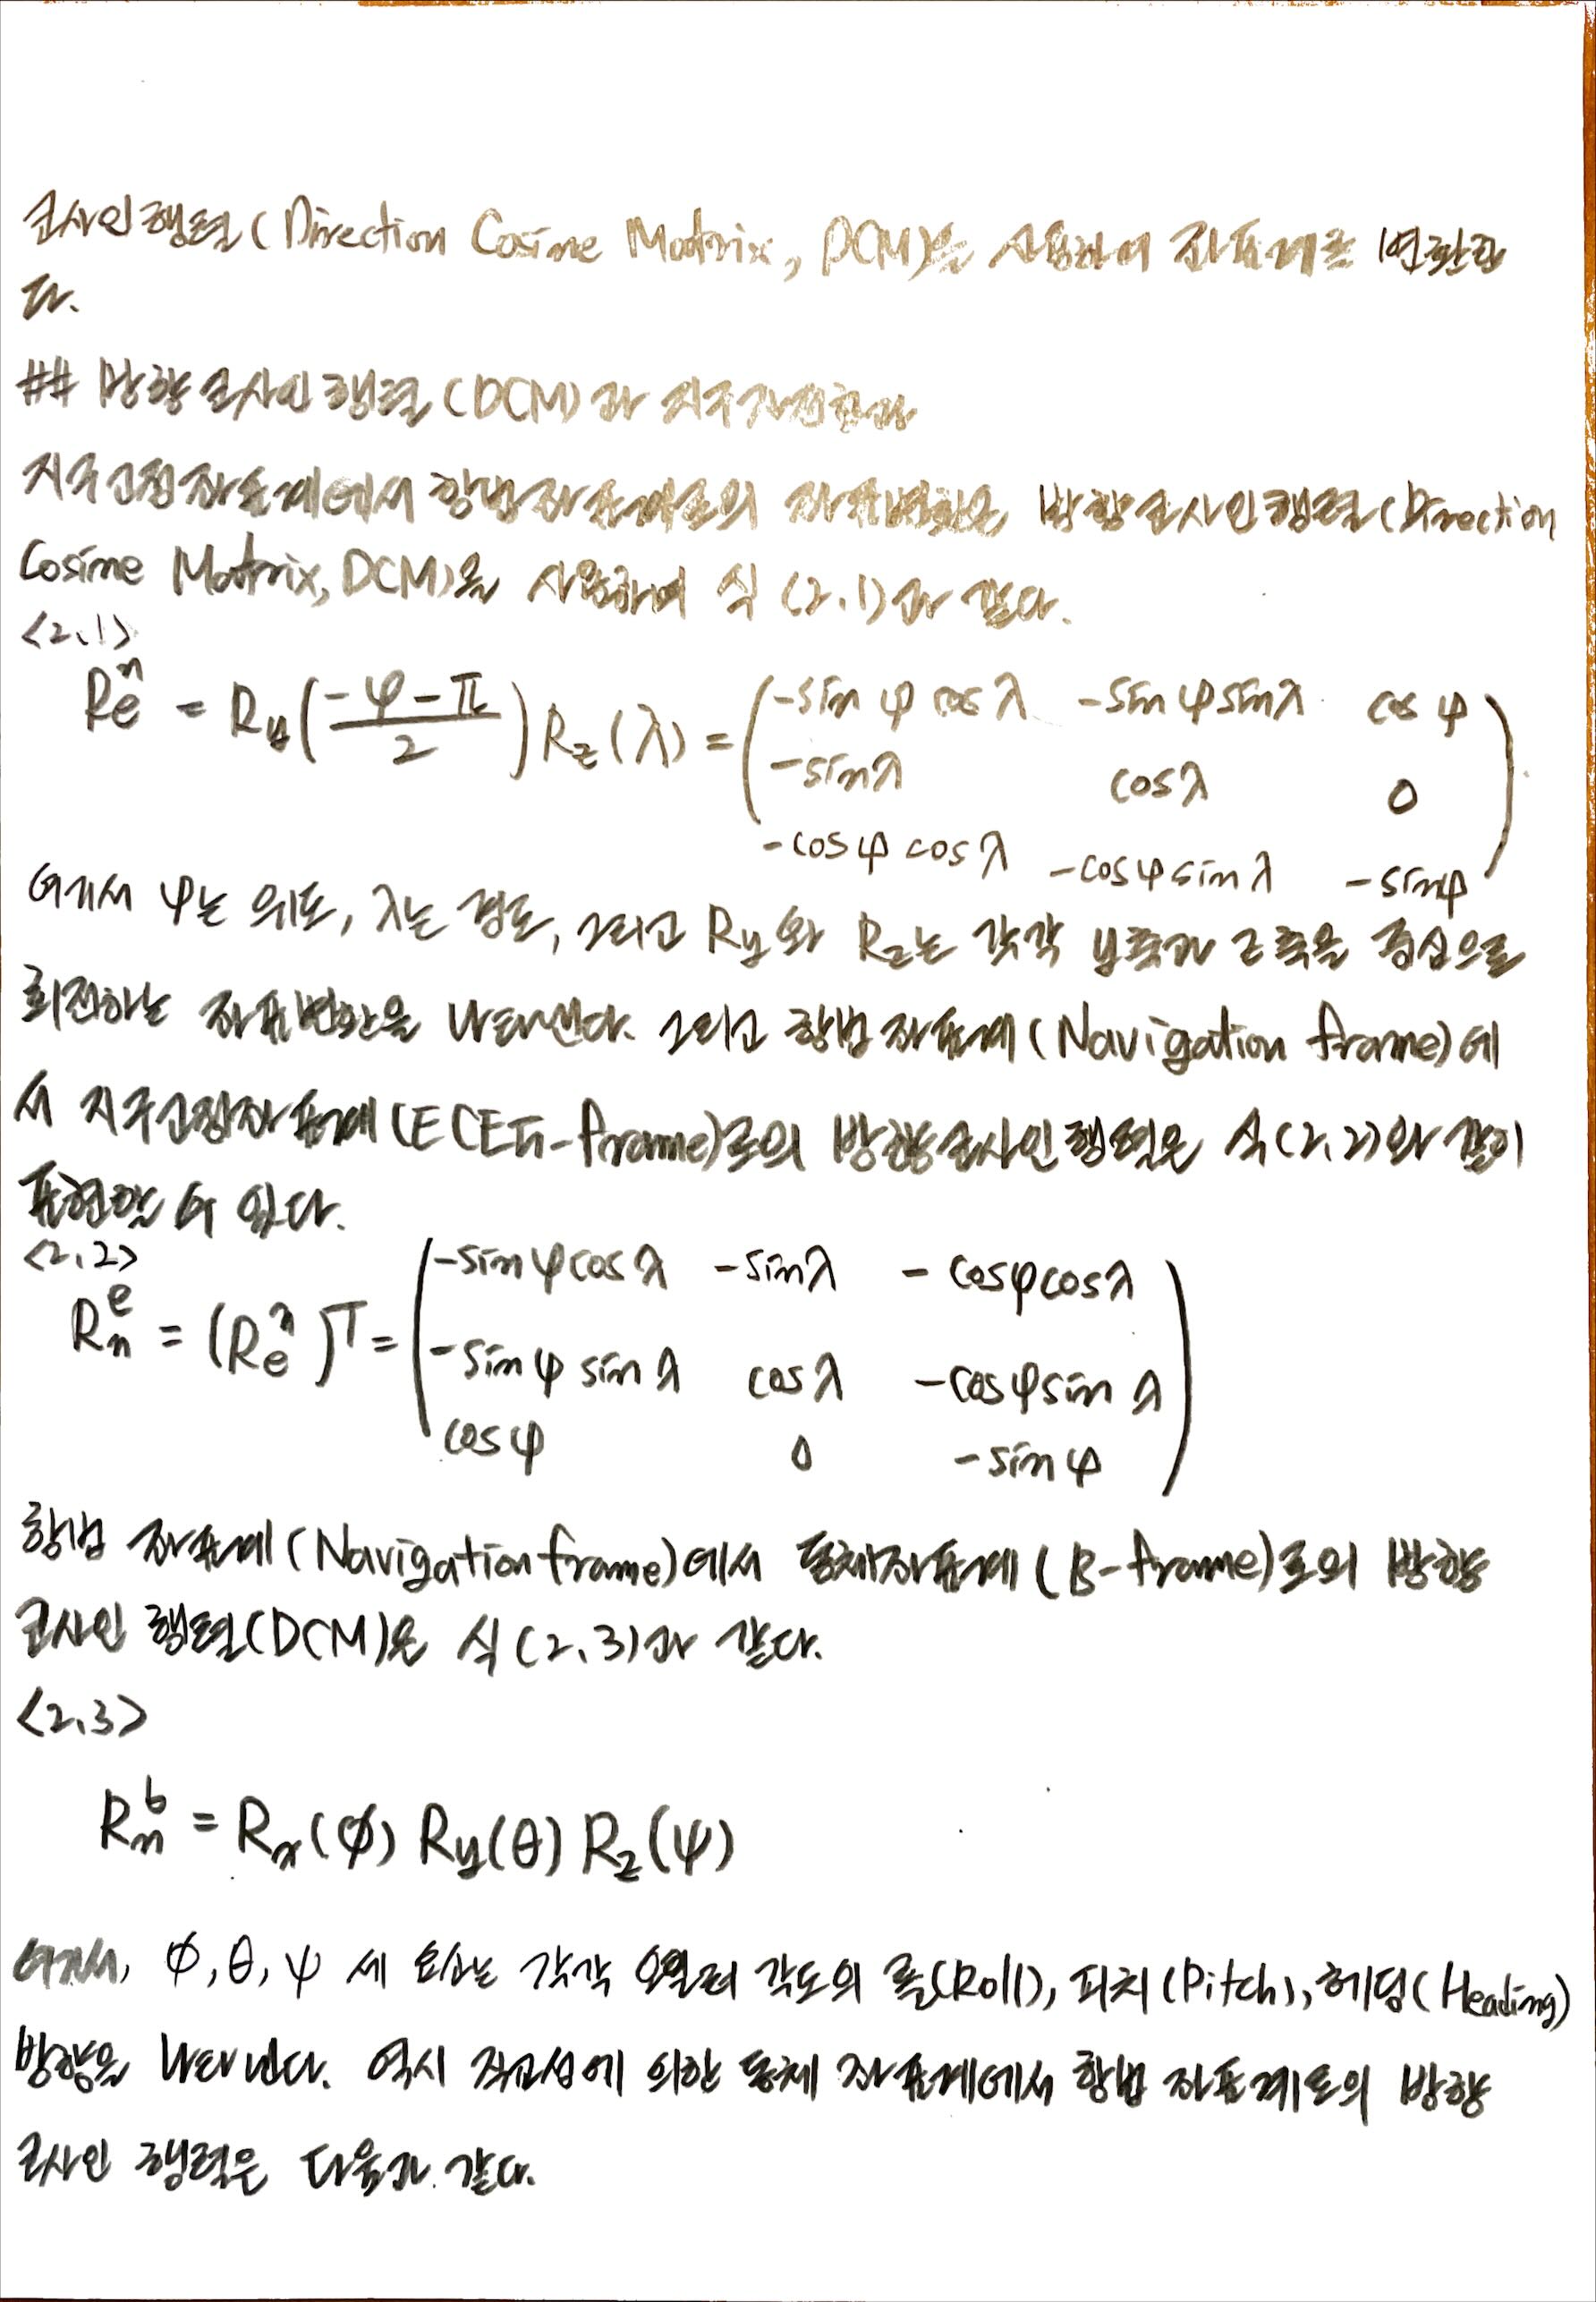 코사인행렬(Direction Cosine Matrix, DCM)을 사용하여 좌표계를 변환한
다.
## 방향코사인행렬(DCM)과 지구자전
지구고정좌표계에서 항법좌표계로의 좌표변환은 방향코사인행렬(Direction
Cosine Matrix, DCM)을 사용하여 식 (2.1)과 같다.
<2.1>
R_e^n = R_y((-φ-π)/2) R_z(λ) = (-sinφ cosλ -sinφ sinλ cosφ
-sinλ cosλ 0
-cosφ cosλ -cosφ sinλ -sinφ)
여기서 φ는 위도, λ는 경도, 그리고 Ry와 Rz는 각각 y축과 z축을 중심으로
회전하는 좌표변환을 나타낸다. 그리고 항법좌표계(Navigation frame)에
서 지구고정좌표계(ECEF-frame)로의 방향코사인행렬은 식(2.2)와 같이
표현할 수 있다.
<2.2>
R_n^e = (R_e^n)^T = (-sinφ cosλ -sinλ -cosφ cosλ
-sinφ sinλ cosλ -cosφ sinλ
cosφ 0 -sinφ)
항법 좌표계(Navigation frame)에서 동체좌표계(B-frame)로의 방향
코사인 행렬(DCM)은 식(2.3)과 같다.
<2.3>
R_n^b = R_x(ϕ) R_y(θ) R_z(ψ)
여기서, ϕ, θ, ψ 세 요소는 각각 오일러 각도의 롤(Roll), 피치(Pitch), 헤딩(Heading)
방향을 나타낸다. 역시 직교성에 의한 동체 좌표계에서 항법 좌표계로의 방향
코사인 행렬은 다음과 같다.